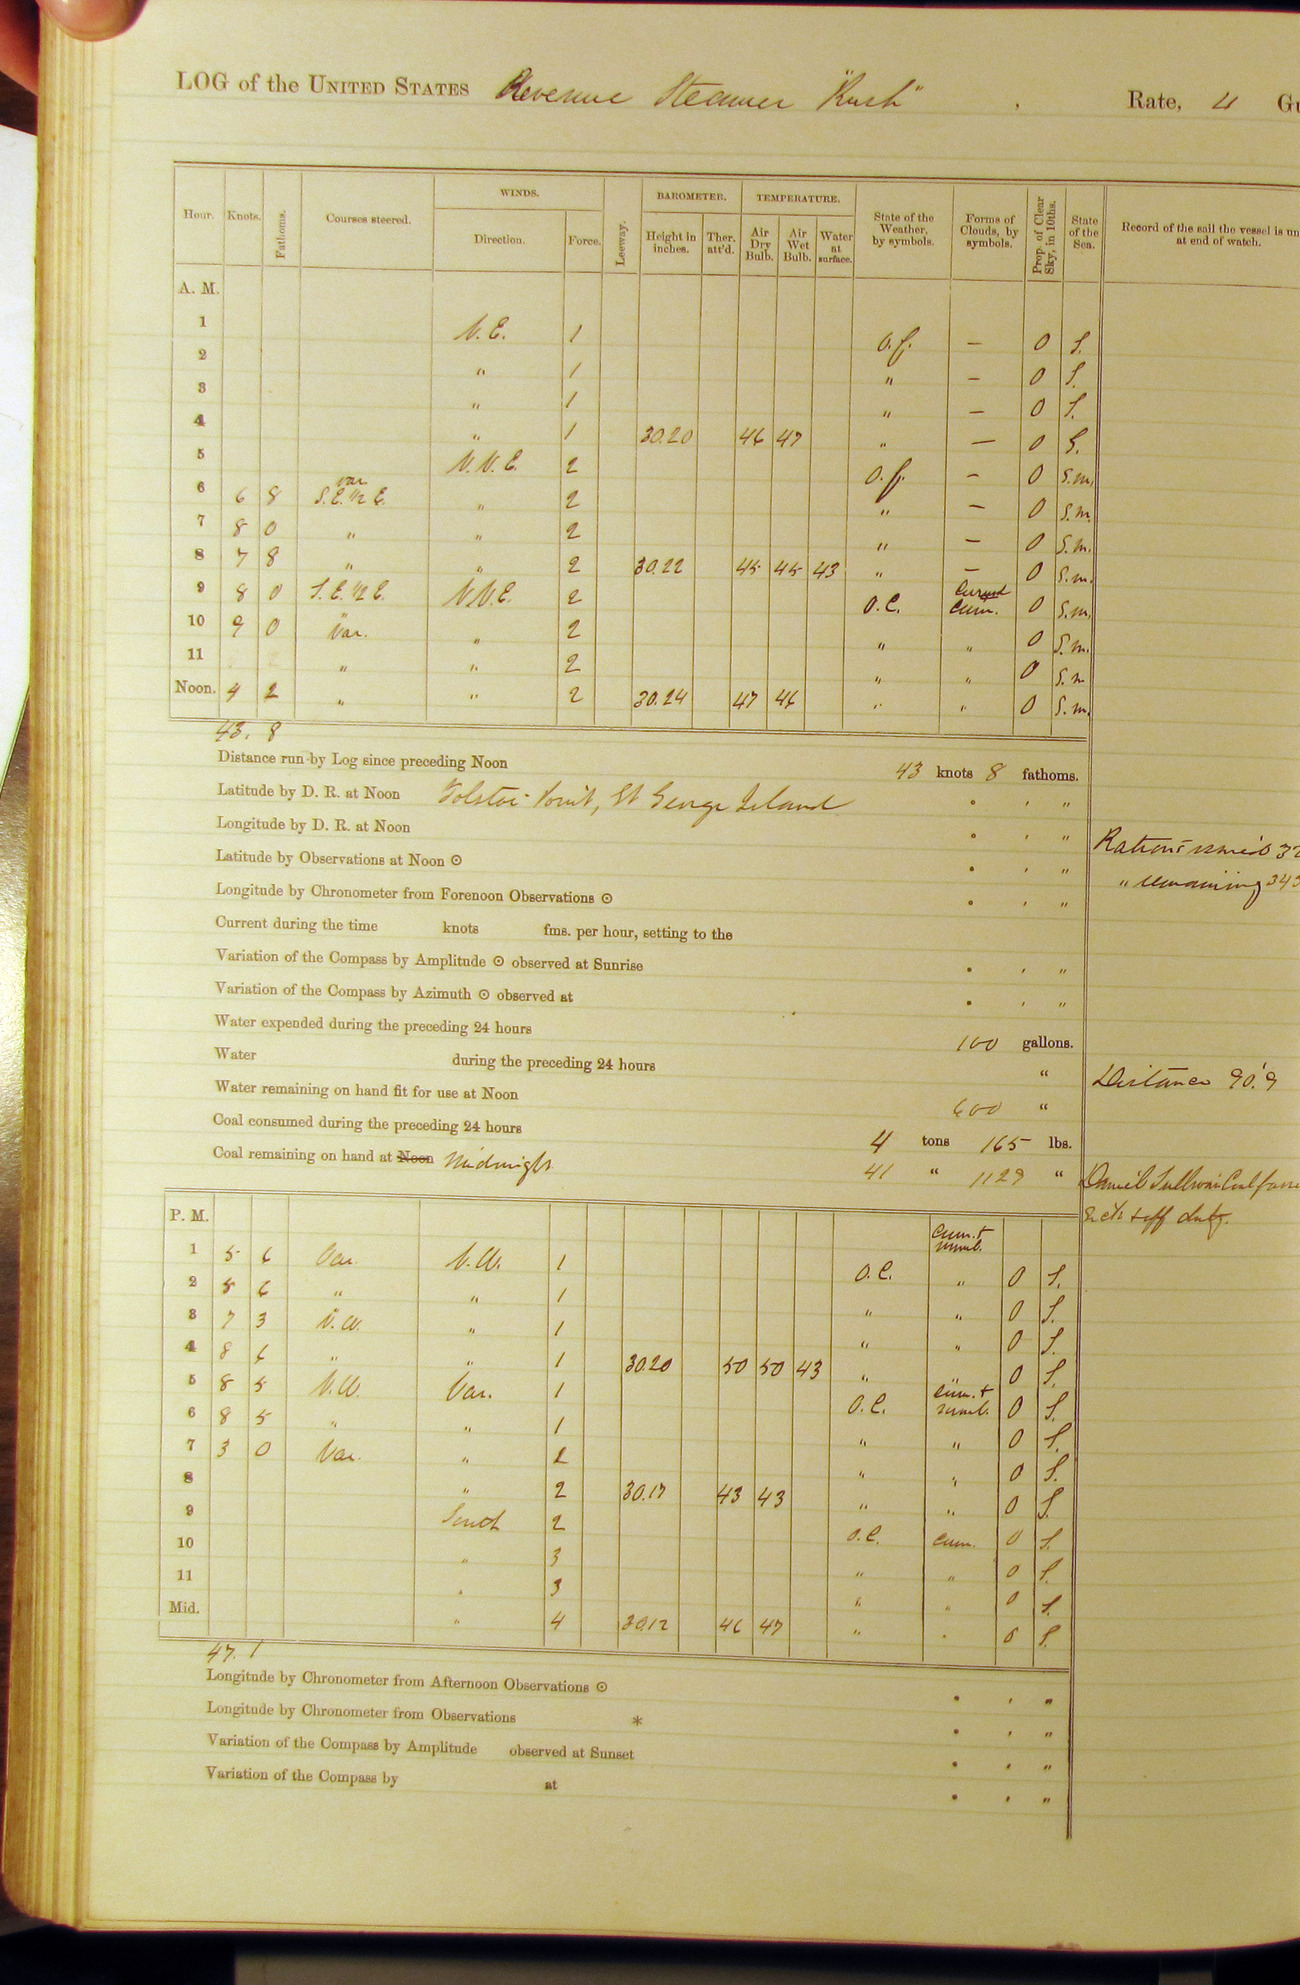 LOG of the UNITED STATES Revenue Steamer "Rush" , Rate, 4 Gu
Hour. Knots. Fathoms. Courses steered. WINDS. Direction. Force. Leeway. BAROMETER. Height in inches. Ther. att'd. TEMPERATURE. Air Dry Bulb. Air Wet Bulb. Water at surface. State of the Weather, by symbols. Forms of Clouds, by symbols. Prop. of Clear Sky, in 10ths. State of the Sea. Record of the sail the vessel is un at end of watch.
A. M.
1 N.E. 1 O.f. — 0 S.
2 " 1 " — 0 S.
3 " 1 " — 0 S.
4 " 1 30.20 46 47 " — 0 S.
5 N.N.E. 2 O.f. — 0 S.m.
6 6 8 var S.E. ½ E. " 2 " — 0 S.m.
7 8 0 " " 2 " — 0 S.m.
8 7 8 " " 2 30.22 45 45 43 " — 0 S.m.
9 8 0 S.E. ½ E. N.N.E. 2 O.C. Cum. 0 S.m.
10 9 0 Var. " 2 " " 0 S.m.
11 " " 2 " " 0 S.m
Noon. 4 2 " " 2 30.24 47 46 " " 0 S.m.
43. 8
Distance run by Log since preceding Noon 43 knots 8 fathoms.
Latitude by D. R. at Noon Tolstoi Point, St George Island ° ' "
Longitude by D. R. at Noon ° ' "
Latitude by Observations at Noon ⊙ ° ' "
Rations issued 32
Longitude by Chronometer from Forenoon Observations ⊙ ° ' "
" remaining 343
Current during the time knots fms. per hour, setting to the
Variation of the Compass by Amplitude ⊙ observed at Sunrise ° ' "
Variation of the Compass by Azimuth ⊙ observed at ° ' "
Water expended during the preceding 24 hours 100 gallons.
Water during the preceding 24 hours "
Distance 90.'9
Water remaining on hand fit for use at Noon 600 "
Coal consumed during the preceding 24 hours 4 tons 165 lbs.
Coal remaining on hand at Noon Midnight 41 " 1129 "
Daniel Sullivan
off duty.
P. M.
1 5 6 Var. N.W. 1 O.C. Cum. + nimb. " 0 S.
2 5 6 " " 1 " " 0 S.
3 7 3 N.W. " 1 " " 0 S.
4 8 6 " " 1 30.20 50 50 43 " " 0 S.
5 8 5 N.W. Var. 1 O.C. Cum. + nimb. 0 S.
6 8 5 " " 1 " " 0 S.
7 3 0 Var. " 2 " " 0 S.
8 " 2 30.17 43 43 " " 0 S.
9 South 2 O.C. Cum. 0 S.
10 " 3 " " 0 S.
11 " 3 " " 0 S.
Mid. " 4 30.12 46 47 " " 0 S.
47. 1
Longitude by Chronometer from Afternoon Observations ⊙ ° ' "
Longitude by Chronometer from Observations * ° ' "
Variation of the Compass by Amplitude observed at Sunset ° ' "
Variation of the Compass by at ° ' "